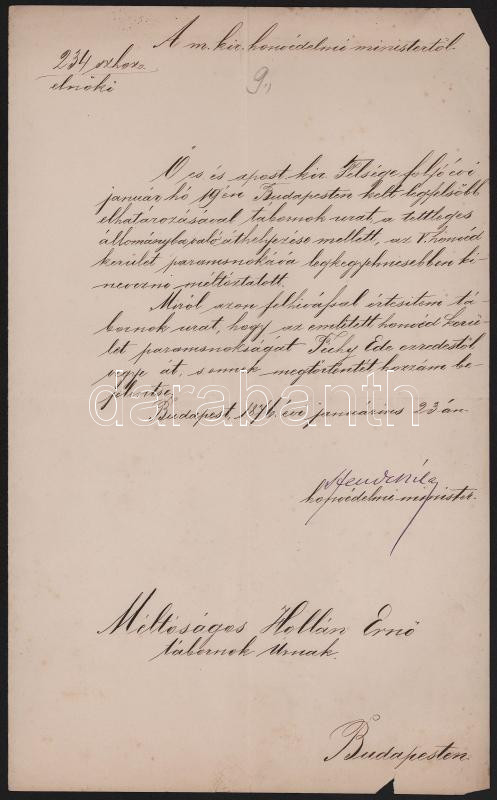 A m. kir. honvédelmi ministertől.
234
elnöki
9.,
Ő cs és apost. kir. Felsége folyó évi
január hó 19én Budapesten kelt legfelsőbb
elhatározásával tábornok urat, a tettleges
állományba való áthelyezése mellett, az V. honvéd
kerület paransnokává legkegyelmesebben ki-
nevezni méltóztatott.
Miről azon felhivással értesitem tá-
bornok urat, hogy az emlitett honvéd kerü-
let paransnokságát Ede ezredestől
vegye át, s ennek megtörténtét hozzám be-
jelentse.
Budapest, 1876. évi januárius 23-án.
honvédelmi minister.
Méltóságos Hollán Ernő
tábornok Urnak.
Budapesten.
darabanth